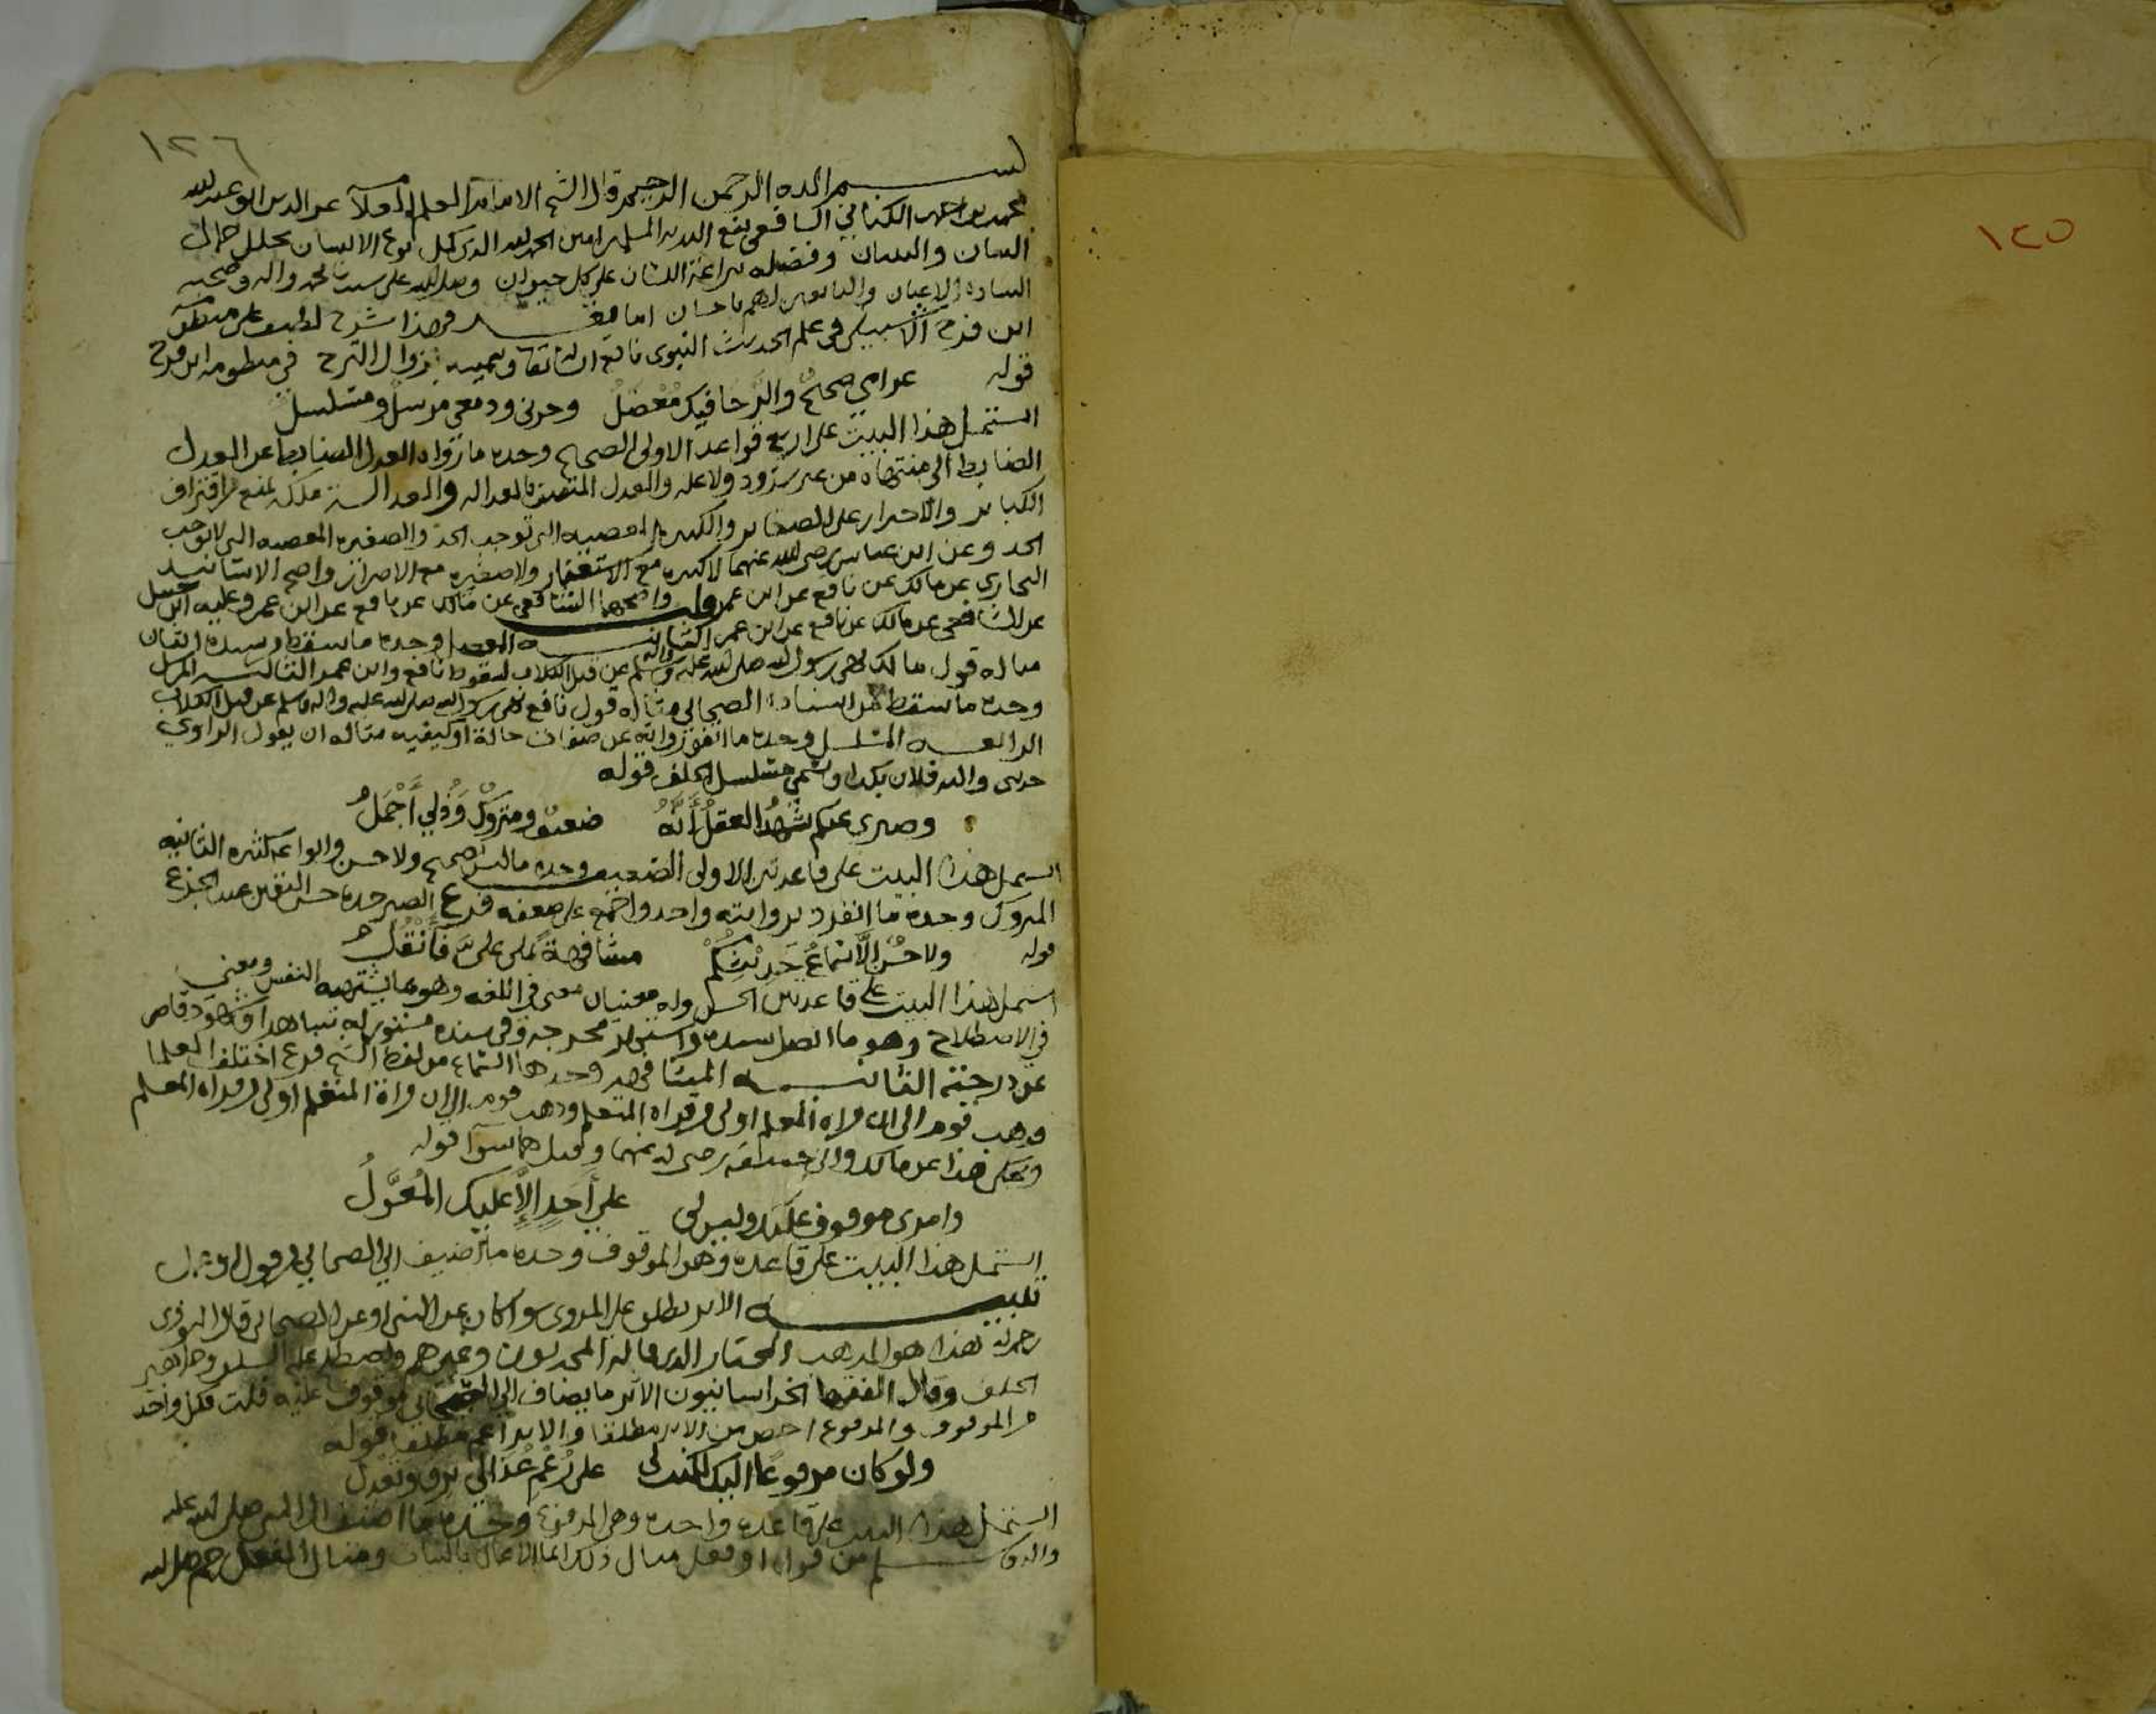 ١٢٥
١٢٦
بسم الله الرحمن الرحيم قال الشيخ الامام العلامة عز الدين ابو عبد الله
محمد بن احمد الكناني الشافعي نفع الله به المسلمين امين الحمد لله الذي كمل نوع الانسان بحلل جمال
البيان والتبيان وفضله ببراعة اللسان على كل حيوان وصلى الله على سيدنا محمد واله وصحبه
السادة الاعيان والتابعين لهم باحسان اما بعد فهذا شرح لطيف على منظومة
ابن فرح الاشبيلي في علم الحديث النبوي نافع ان شا الله تعالى وسميته زوال الترح في منظومة ابن فرح
قوله غرامي صحيح والرجا فيك معضل وحزني ودمعي مرسل ومسلسل
اشتمل هذا البيت على اربع قواعد الاولى الصحيح وحده ما رواه العدل الضابط عن العدل
الضابط الى منتهاه من غير شذوذ ولا علة والعدل المتصف بالعدالة والعدالة ملكة تمنع من اقتراف
الكبائر والاصرار على الصغائر والكبيرة المعصية التي توجب الحد والصغيرة المعصية التي لا توجب
الحد وعن ابن عباس رضي الله عنهما لا كبيرة مع الاستغفار ولا صغيرة مع الاصرار واصح الاسانيد
البخاري عن مالك عن نافع عن ابن عمر قلت واصحها الشافعي عن مالك عن نافع عن ابن عمر وعليه ابن حنبل
عن الشافعي عن مالك عن نافع عن ابن عمر الثانية المعضل وحده ما سقط من سنده اثنان
مثاله قول مالك نهى رسول الله صلى الله عليه واله وسلم عن قتل الكلاب لسقوط نافع وابن عمر الثالثة المرسل
وحده ما سقط من اسناده الصحابي مثاله قول نافع نهى رسول الله صلى الله عليه واله وسلم عن قتل الكلاب
الرابعة المسلسل وحده ما اتفق رواته على صفات حالة او كيفية مثاله ان يقول الراوي
حدثني والله فلان بكذا وسمي مسلسل الحلف قوله
وصبري عنكم يشهد العقل انه ضعيف ومتروك وذلي اجمل
اشتمل هذا البيت على قاعدتين الاولى الضعيف وحده ما ليس بصحيح ولا حسن وانواعه كثيرة الثانية
المتروك وحده ما انفرد بروايته واحد واجمع على ضعفه فرع الصبر حده حبس النفس عند الجزع
قوله ولا حسن الا سماع حديثكم مشافهة يملى علي فانقل
اشتمل هذا البيت على قاعدتين الحسن وله معنيان معنى في اللغة وهو ما تشتهيه النفس ومعنى
في الاصطلاح وهو ما اتصل سنده واشتهر مخرجه وفي سنده مستور له شاهد او مشهور قاصر
عن درجته الثانية المشافهة وحدها السماع من لفظ الشيخ فرع اختلف العلما
فذهب قوم الى ان قراة المعلم اولى من قراة المتعلم وذهب قوم الى ان قراة المتعلم اولى من قراة المعلم
وحكي هذا عن مالك وابي حنيفة رضي الله عنهما وقيل هما سوا قوله
وامري موقوف عليك وليس لي على احد الا عليك المعول
اشتمل هذا البيت على قاعدة وهو الموقوف وحده ما اضيف الى الصحابي من قول او فعل
تنبيه الاثر يطلق على المروي سوا كان عن النبي او عن الصحابي قال النووي
رحمه الله هذا هو المذهب المختار الذي قاله المحدثون وغيرهم واصطلح عليه السلف وجماهير
الخلف وقال الفقها الخراسانيون الاثر ما يضاف الى الصحابي موقوف عليه قلت فكل واحد
من الموقوف والمرفوع اخص من الاثر مطلقا والاثر اعم مطلقا قوله
ولو كان مرفوعا اليك لكنت لي على رغم عذالي ترق وتعدل
اشتمل هذا البيت على قاعدة واحدة وهي المرفوع وحده ما اضيف الى النبي صلى الله عليه
واله وسلم من قول او فعل مثال ذلك انما الاعمال بالنيات ومثال الفعل